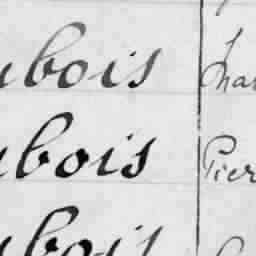 ubois
ubois Pier
ubois